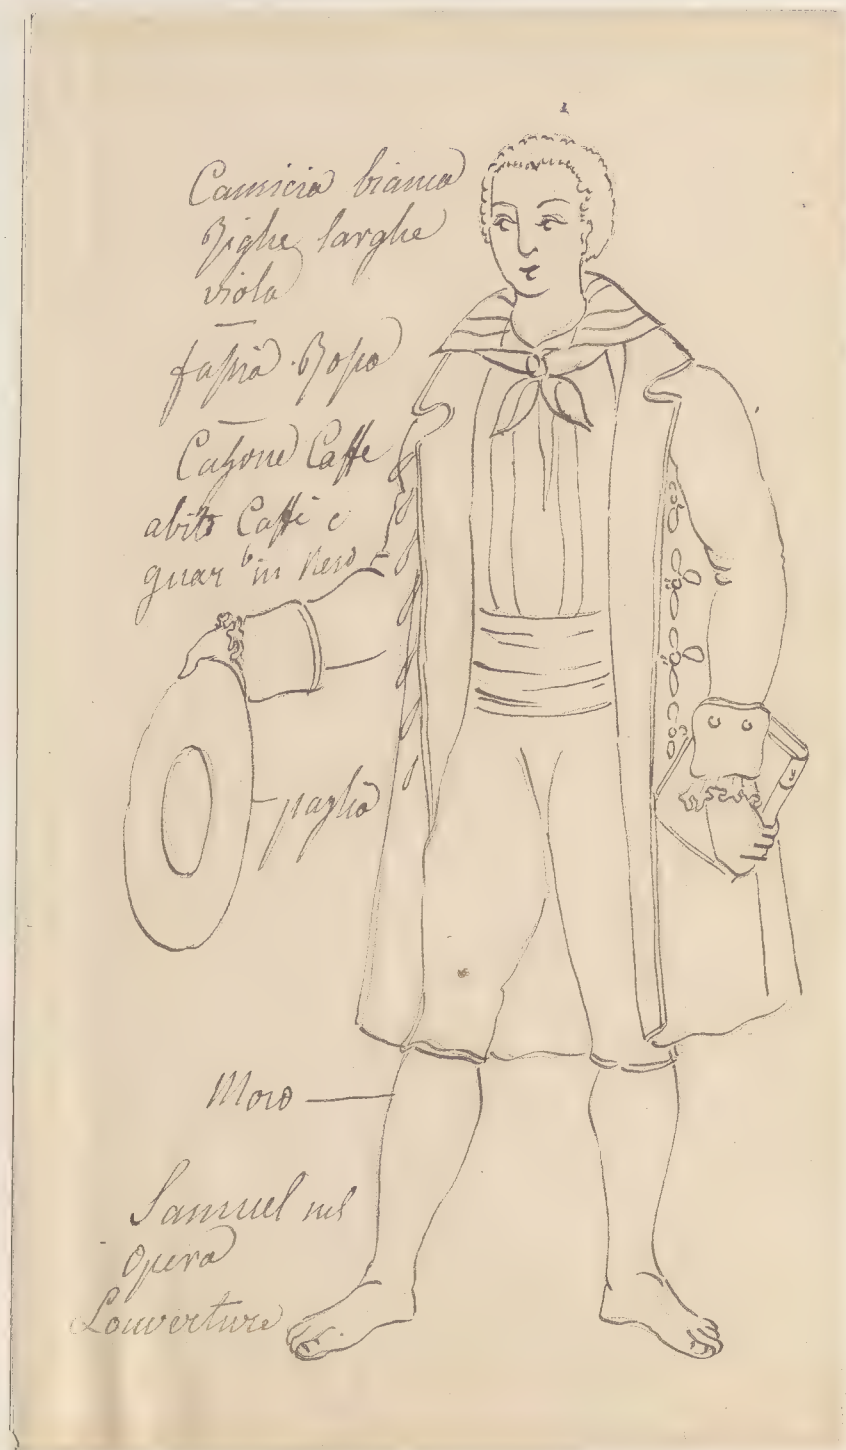 Camicia bianca
Righe larghe
viola
fascia Rossa
Calzone Caffe
abito Caffe e
guar.ⁿ in Nero
paglia
Moro
Samuel nel
Opera
Louverture